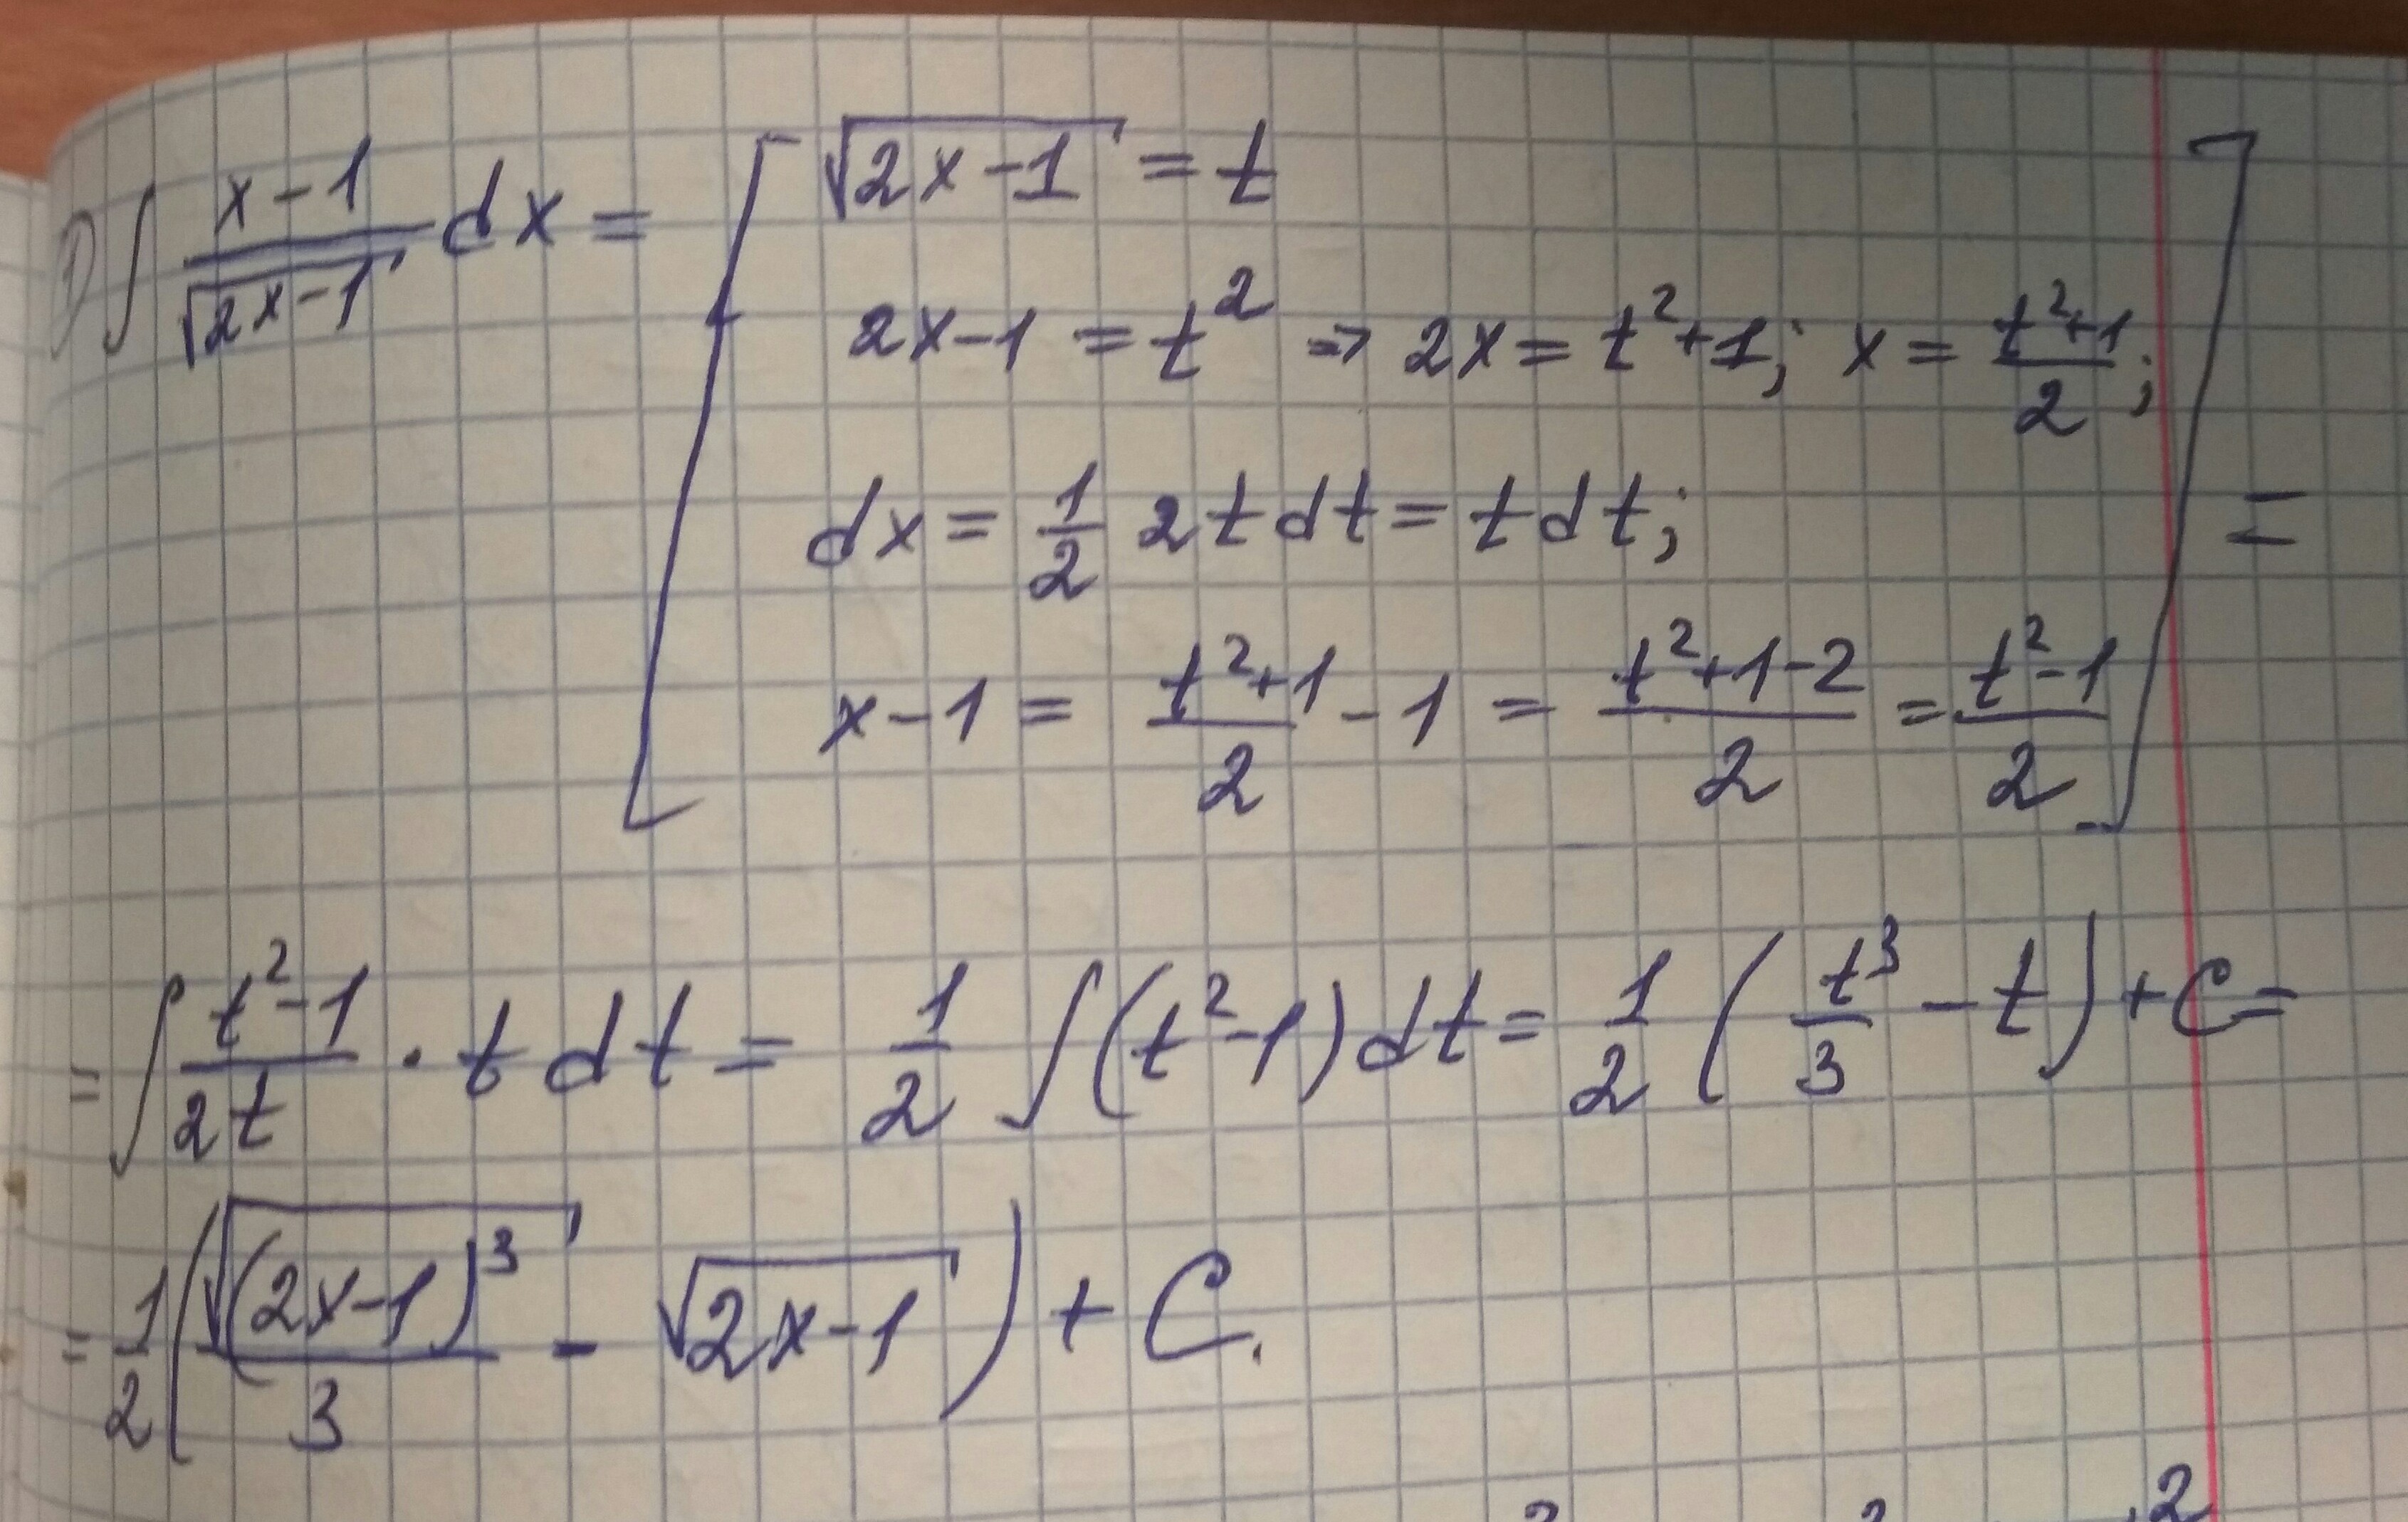 1) ∫ (x-1)/√(2x-1) dx = [ √(2x-1) = t
2x-1 = t² ⇒ 2x = t²+1; x = (t²+1)/2;
dx = 1/2 2t dt = t dt;
x-1 = (t²+1)/2 - 1 = (t²+1-2)/2 = (t²-1)/2 ] =
= ∫ (t²-1)/(2t) · t dt = 1/2 ∫ (t²-1) dt = 1/2 (t³/3 - t) + C =
= 1/2 (√((2x-1)³)/3 - √(2x-1)) + C.